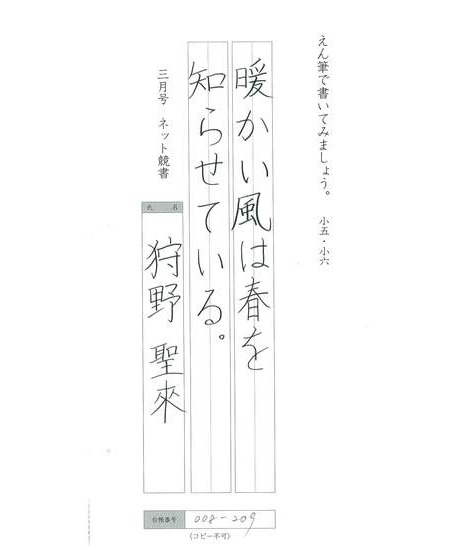 えん筆で書いてみましょう。 小五・小六
暖かい風は春を
知らせている。
三月号 ネット競書
氏 名
狩野 聖來
台帳番号 008-209
(コピー不可)